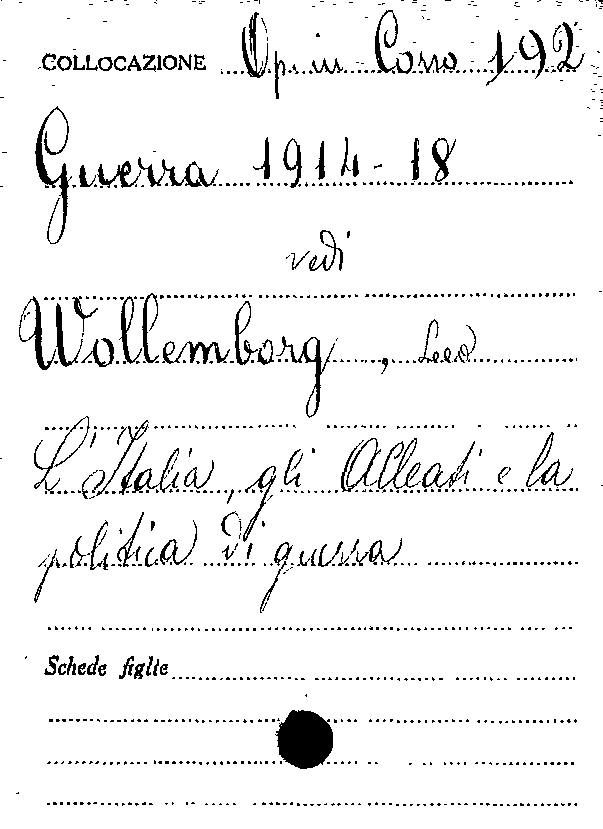 COLLOCAZIONE Op. in Corso 192
Guerra 1914-18
vedi
Wollemborg, Leo
L'Italia, gli Alleati e la
politica di guerra
Schede figlie